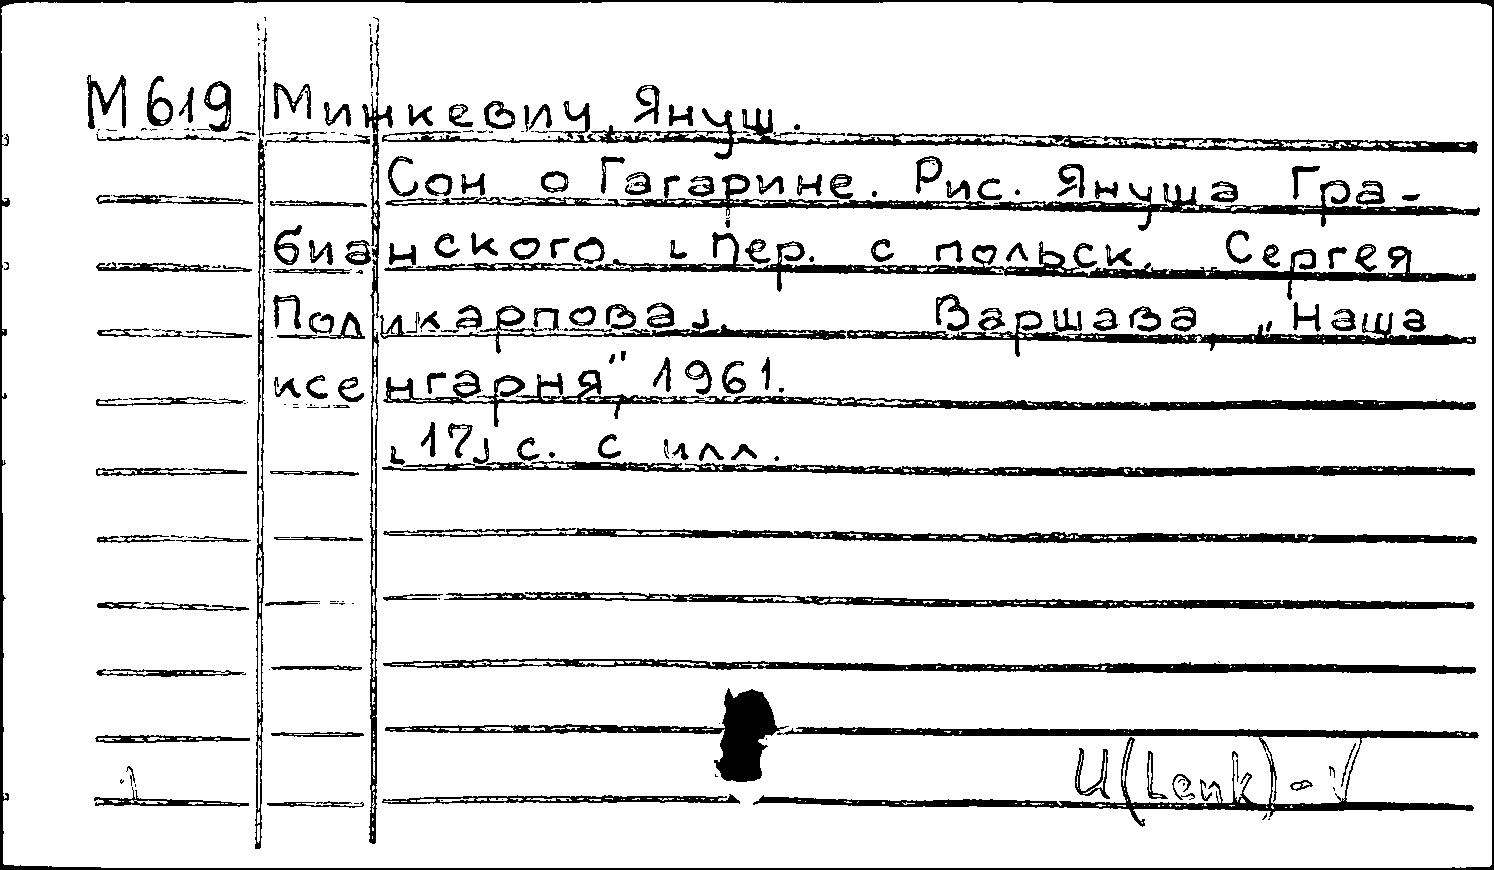 М 619 Минкевич, Януш.
Сон о Гагарине. Рис. Януша Гра-
бианского. [Пер. с польск. Сергея
Поликарпова]. Варшава, „Наша
ксенгарня", 1961.
[17] с. с илл.
1 И(Lenk)-V